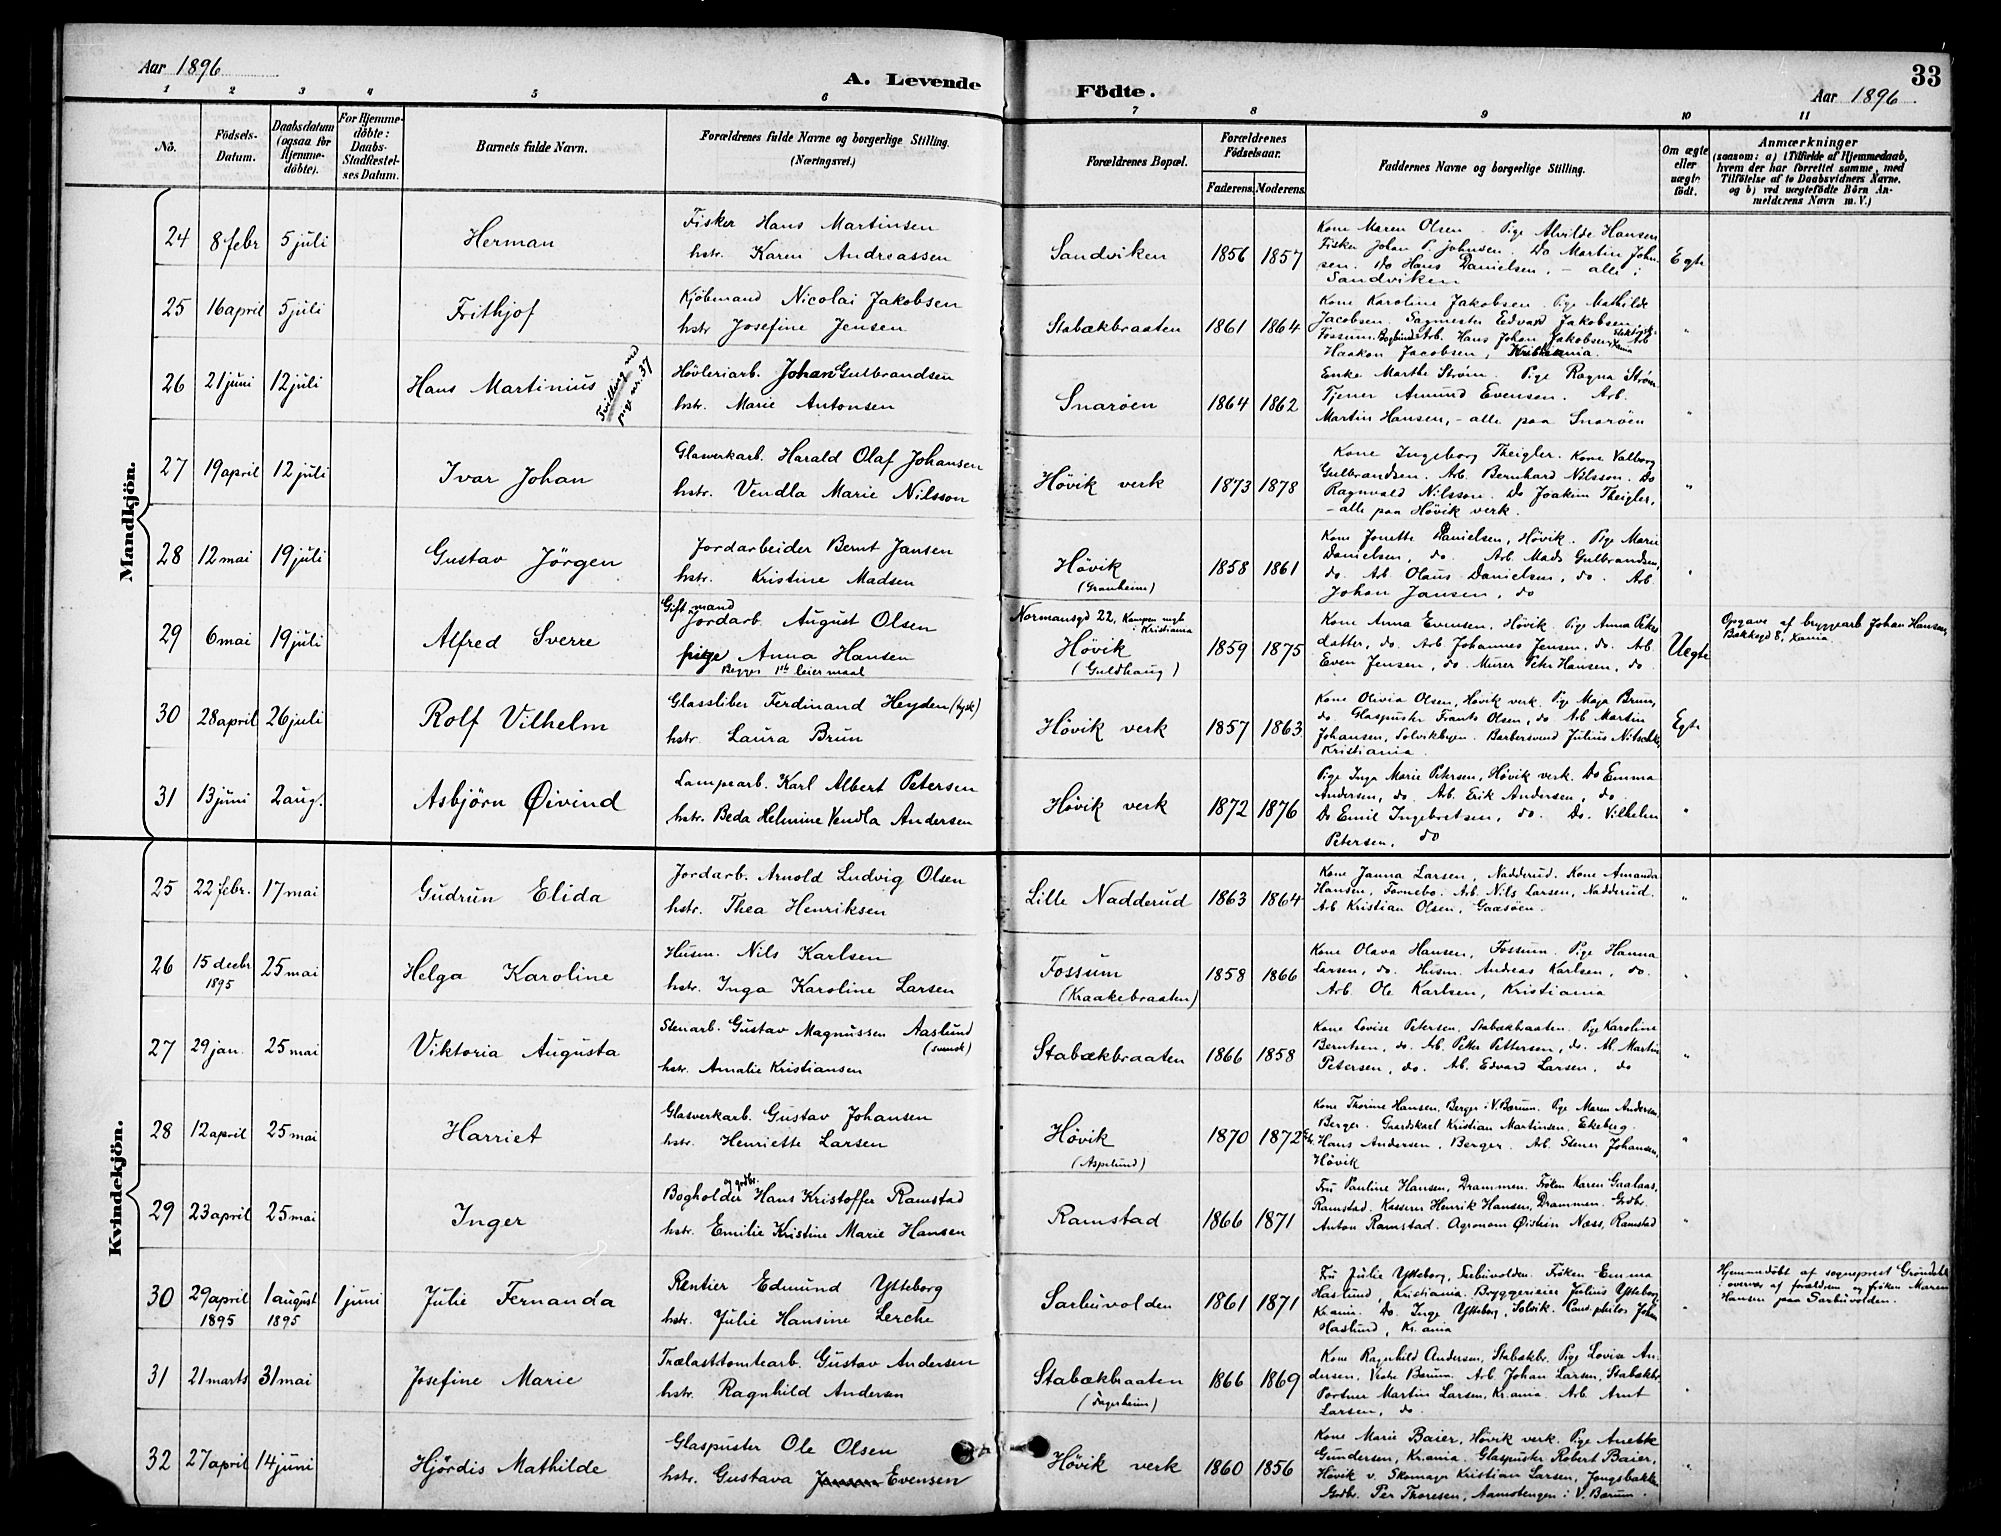 Aar 1896
A. Levende
Födte.
33
Aar 1896
1 2 3 4 5 6 7 8 9 10 11
No.
Födsels-
Datum.
Daabsdatum
(ogsaa for
Hjemme-
döbte).
For Hjemme-
döbte:
Daabs-
Stadfæstel-
ses Datum.
Barnets fulde Navn.
Forældrenes fulde Navne og borgerlige Stilling.
(Næringsvei.)
Forældrenes Bopæl.
Forældrenes
Födselsaar.
Faderens. Moderens.
Faddernes Navne og borgerlige Stilling.
Om ægte
eller
uægte
födt.
Anmærkninger
(saasom: a) i Tilfælde af Hjemmedaab,
hvem der har forrettet samme, med
Tilföielse af to Daabsvidners Navne,
og b) ved uægtefödte Börn An-
melderens Navn m. V.)
Mandkjön.
24 8 febr 5 juli Herman
Fisker Hans Martinsen
hstr. Karen Andreassen
Sandviken 1856 1857
Kone Maren Olsen. Pige Alvilde Hansen
Fisker Johan P. Johnsen. Do Martin John-
sen. Do Hans Danielsen, - alle i
Sandviken
Egte
25 16 april 5 juli Frithjof
Kjöbmand Nicolai Jakobsen
hstr Josefine Jensen
Stabækbraaten 1861 1864
Kone Karoline Jakobsen. Pige Mathilde
Jacobsen. Sagmester Edvard Jakobsen,
Fossum. Bogbind.Arb. Hans Johan Jakobsen,
Haakon Jacobsen, Kristiania.
"
26 21 juni 12 juli Hans Martinius
Tvilling med
pige nr. 37
Hövleriarb. Johan Gulbrandsen
hstr. Marie Antonsen
Snaröen 1864 1862
Enke Marthe Ström. Pige Ragna Ström
Tjener Amund Evensen. Arb.
Martin Hansen, - alle paa Snaröen
"
27 19 april 12 juli Ivar Johan
Glasverkarb. Harald Olaf Johansen
hstr. Vendla Marie Nilsson
Hövik verk 1873 1878
Kone Ingeborg Theigler. Kone Valborg
Gulbrandsen. Arb. Bernhard Nilsson. Do
Ragnvald Nilsson. Do Joakim Theigler,
- alle paa Hövik verk.
"
28 12 mai 19 juli Gustav Jörgen
Jordarbeider Bernt Jansen
hstr. Kristine Madsen
Hövik
(Granheim)
1858 1861
Kone Jonette Danielsen, Hövik. Pige Marie
Danielsen, do. Arb. Mads Gulbrandsen,
do. Arb. Olaus Danielsen, do. Arb.
Johan Jansen, do
"
29 6 mai 19 juli Alfred Sverre
Gift mand
Jordarb. August Olsen
pige Anna Hansen
Begges 1ste leiermaal
Normansgd 22, Kampen
i Kristiania
Hövik
(Guldhaug)
1859 1875
Kone Anna Evensen, Hövik. Pige Anna Peters
datter, do. Arb Johannes Jensen, do. Arb.
Even Jensen, do. Murer Petr Hansen, do.
Uegte
Opgave af byggarb Johan Hansen,
Bakkegd 8, Xania.
30 28 april 26 juli Rolf Vilhelm
Glassliber Ferdinand Heyden (tysk)
hstr. Laura Brun
Hövik verk 1857 1863
Kone Olivia Olsen, Hövik verk. Pige Maja Brun,
do. Glaspuster Frants Olsen, do. Arb Martin
Johansen, Solvikbyen. Barbersvend Julius Nitschke
Kristiania.
Egte
31 13 juni 2 aug. Asbjörn Øivind
Lampearb. Karl Albert Petersen
hstr. Beda Helmine Vendla Andersen
Hövik verk 1872 1876
Pige Inga Marie Petersen, Hövik verk. Do Emma
Andersen, do. Arb. Erik Andersen, do.
Do Emil Ingebretsen, do. Do. Vilhelm
Petersen, do
"
Kvindekjön.
25 22 febr. 17 mai Gudrun Elida
Jordarb. Arnold Ludvig Olsen
hstr. Thea Henriksen
Lille Nadderud 1863 1864
Kone Janna Larsen, Nadderud. Kone Amanda
Hansen, Fornebo. Arb. Nils Larsen, Nadderud.
Arb. Kristian Olsen, Gaasöen.
"
26 15 decbr 25 mai Helga Karoline
1895
Husm. Nils Karlsen
hstr. Inga Karoline Larsen
Fossum
(Kraakebraaten)
1858 1866
Kone Olava Hansen, Fossum. Pige Hanna
Larsen, do. Husm. Andreas Karlsen, do.
Arb. Ole Karlsen, Kristiania
"
27 29 jan. 25 mai Viktoria Augusta
Stenarb. Gustav Magnussen Aaslund
(svensk)
hstr. Amalie Kristiansen
Stabækbraaten 1866 1858
Kone Lovise Petersen, Stabækbraaten. Pige Karoline
Berntsen, do. Arb. Petter Pettersen, do. Ab. Martin
Petersen, do. Ab. Edvard Larsen, do
"
28 12 april 25 mai Harriet
Glasverkarb. Gustav Johansen
hstr. Henriette Larsen
Hövik
(Aspelund)
1870 1872
Kone Thorine Hansen, Berger i V. Bærum. Pige Maren Andersen,
Berger. Gaardskarl Kristian Martinsen, Ekeberg.
Hans Andersen, Berger. Arb. Stener Johansen,
Hövik
"
29 23 april 25 mai Inger
og gdbr.
Bogholder Hans Kristoffer Ramstad
hstr. Emilie Kristine Marie Hansen
Ramstad 1866 1871
Fru Pauline Hansen, Drammen. Fröken Karen Gaalaas,
Ramstad. Kasserer Henrik Hansen, Drammen. Grdbr.
Anton Ramstad. Agronom Øistein Næss, Ramstad
"
30 29 april 1 august 1 juni Julie Fernanda
1895 1895
Rentier Edmund Ytteborg
hstr. Julie Hansine Lerche
Sarbuvolden 1861 1871
Fru Julie Ytteborg, Sarbuvolden. Fröken Emma
Haslund, Kristiania. Bryggerieier Julius Ytteborg,
Kr.ania. Do. Inge Ytteborg, Solvik. Cand. philos Johan
Haslund, Kr.ania
"
Hjemmedöbt af sogneprest Gröndahl
i overvær af forældrene og fröken Maren
Hansen paa Sarbuvolden.
31 21 marts 31 mai Josefine Marie
Trælasttomtearb. Gustav Andersen
hstr. Ragnhild Andersen
Stabækbraaten
(Fagerheim)
1866 1869
Kone Ragnhild Andersen, Stabækbr. Pige Lovise An-
dersen, Vestre Bærum. Arb. Johan Larsen, Stabækbr.
Portner Martin Larsen, Kr.ania. Arb. Arnt
Larsen, do.
"
32 27 april 14 juni Hjördis Mathilde
Glaspuster Ole Olsen
hstr. Gustava Evensen
Hövik verk 1860 1856
Kone Marie Baier, Hövik verk. Pige Anette
Gundersen, Kr.ania. Glaspuster Robert Baier,
Hövik v. Skomager Kristian Larsen, Jongsbakken
Grdbr. Per Thoresen, Aamotengen i V. Bærum.
"